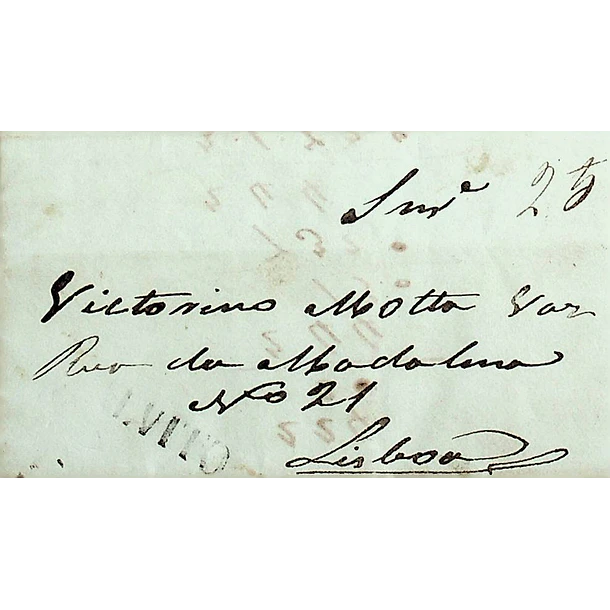 Snr. 25
Victorino Motta Vaz
Rua da Madalena
No 21
Lisboa